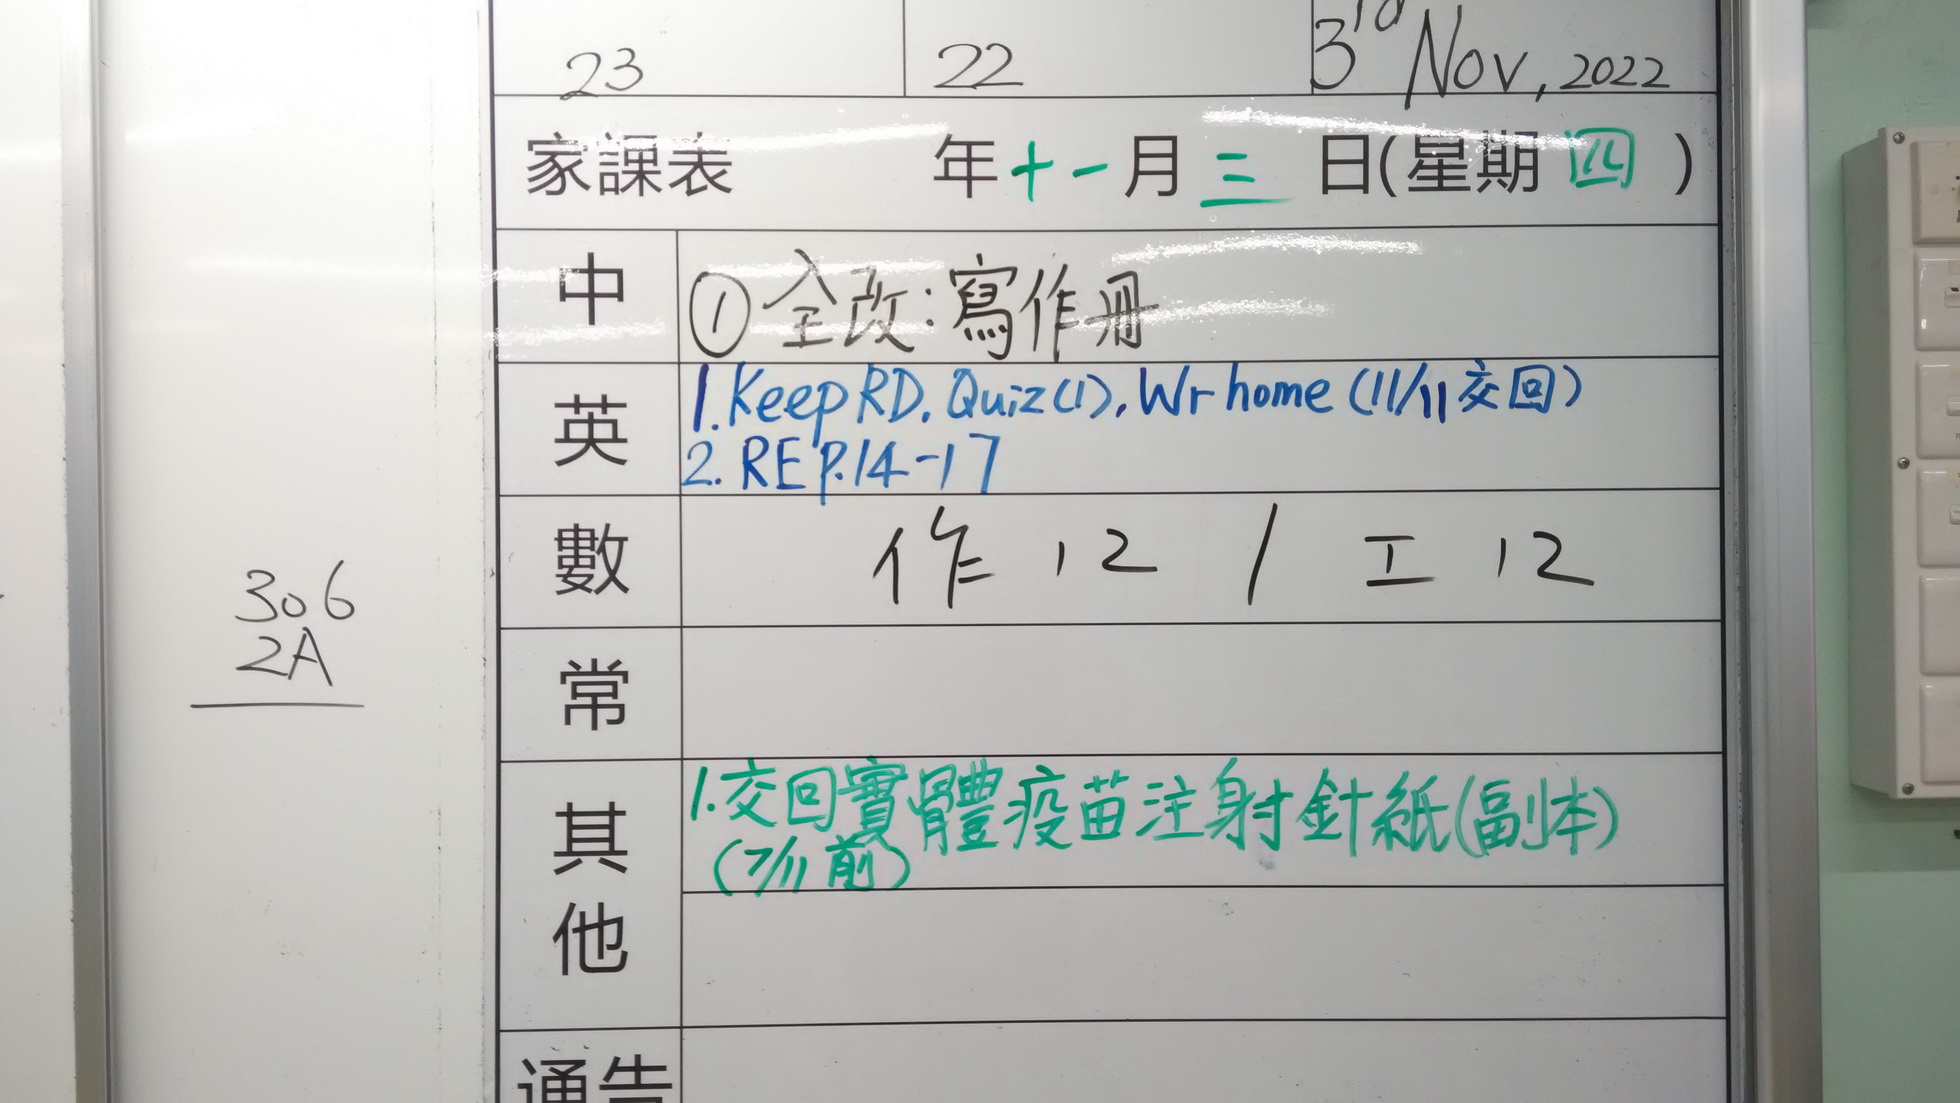 23 22 3rd Nov, 2022
家課表 年十一月三日(星期四)
中 ①全改:寫作冊
英 1. Keep RD, Quiz(1), Wr home (11/11交回)
2. RE P.14-17
數 作 12 / 工 12
306
2A
常
其他 1.交回實體疫苗注射針紙(副本)
(7/11前)
通告